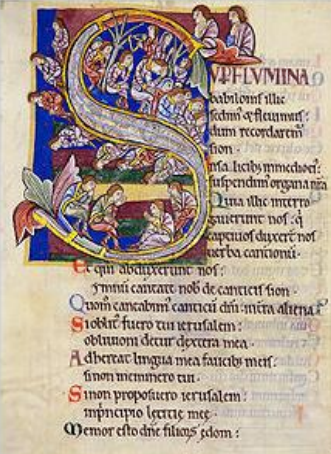 SUP FLUMINA
babilonis illic
sedim &amp; fleuimus:
dum recordarem
sion
In salicibs in medio ei:
suspendim organa nra
Quia illic interro
gauerunt nos: q
captiuos duxert nos
uerba cantionu.
Et qui abduxerunt nos:
ymnu cantate nob de canticis sion
Quom cantabim canticu dni: in tra aliena
Si oblit fuero tui ierusalem:
obliuioni detur dextera mea
Adhereat lingua mea faucib meis:
si non meminero tui.
Si non proposuero ierusalem:
in pncipio letitie mee
Memor esto dne filior edom: